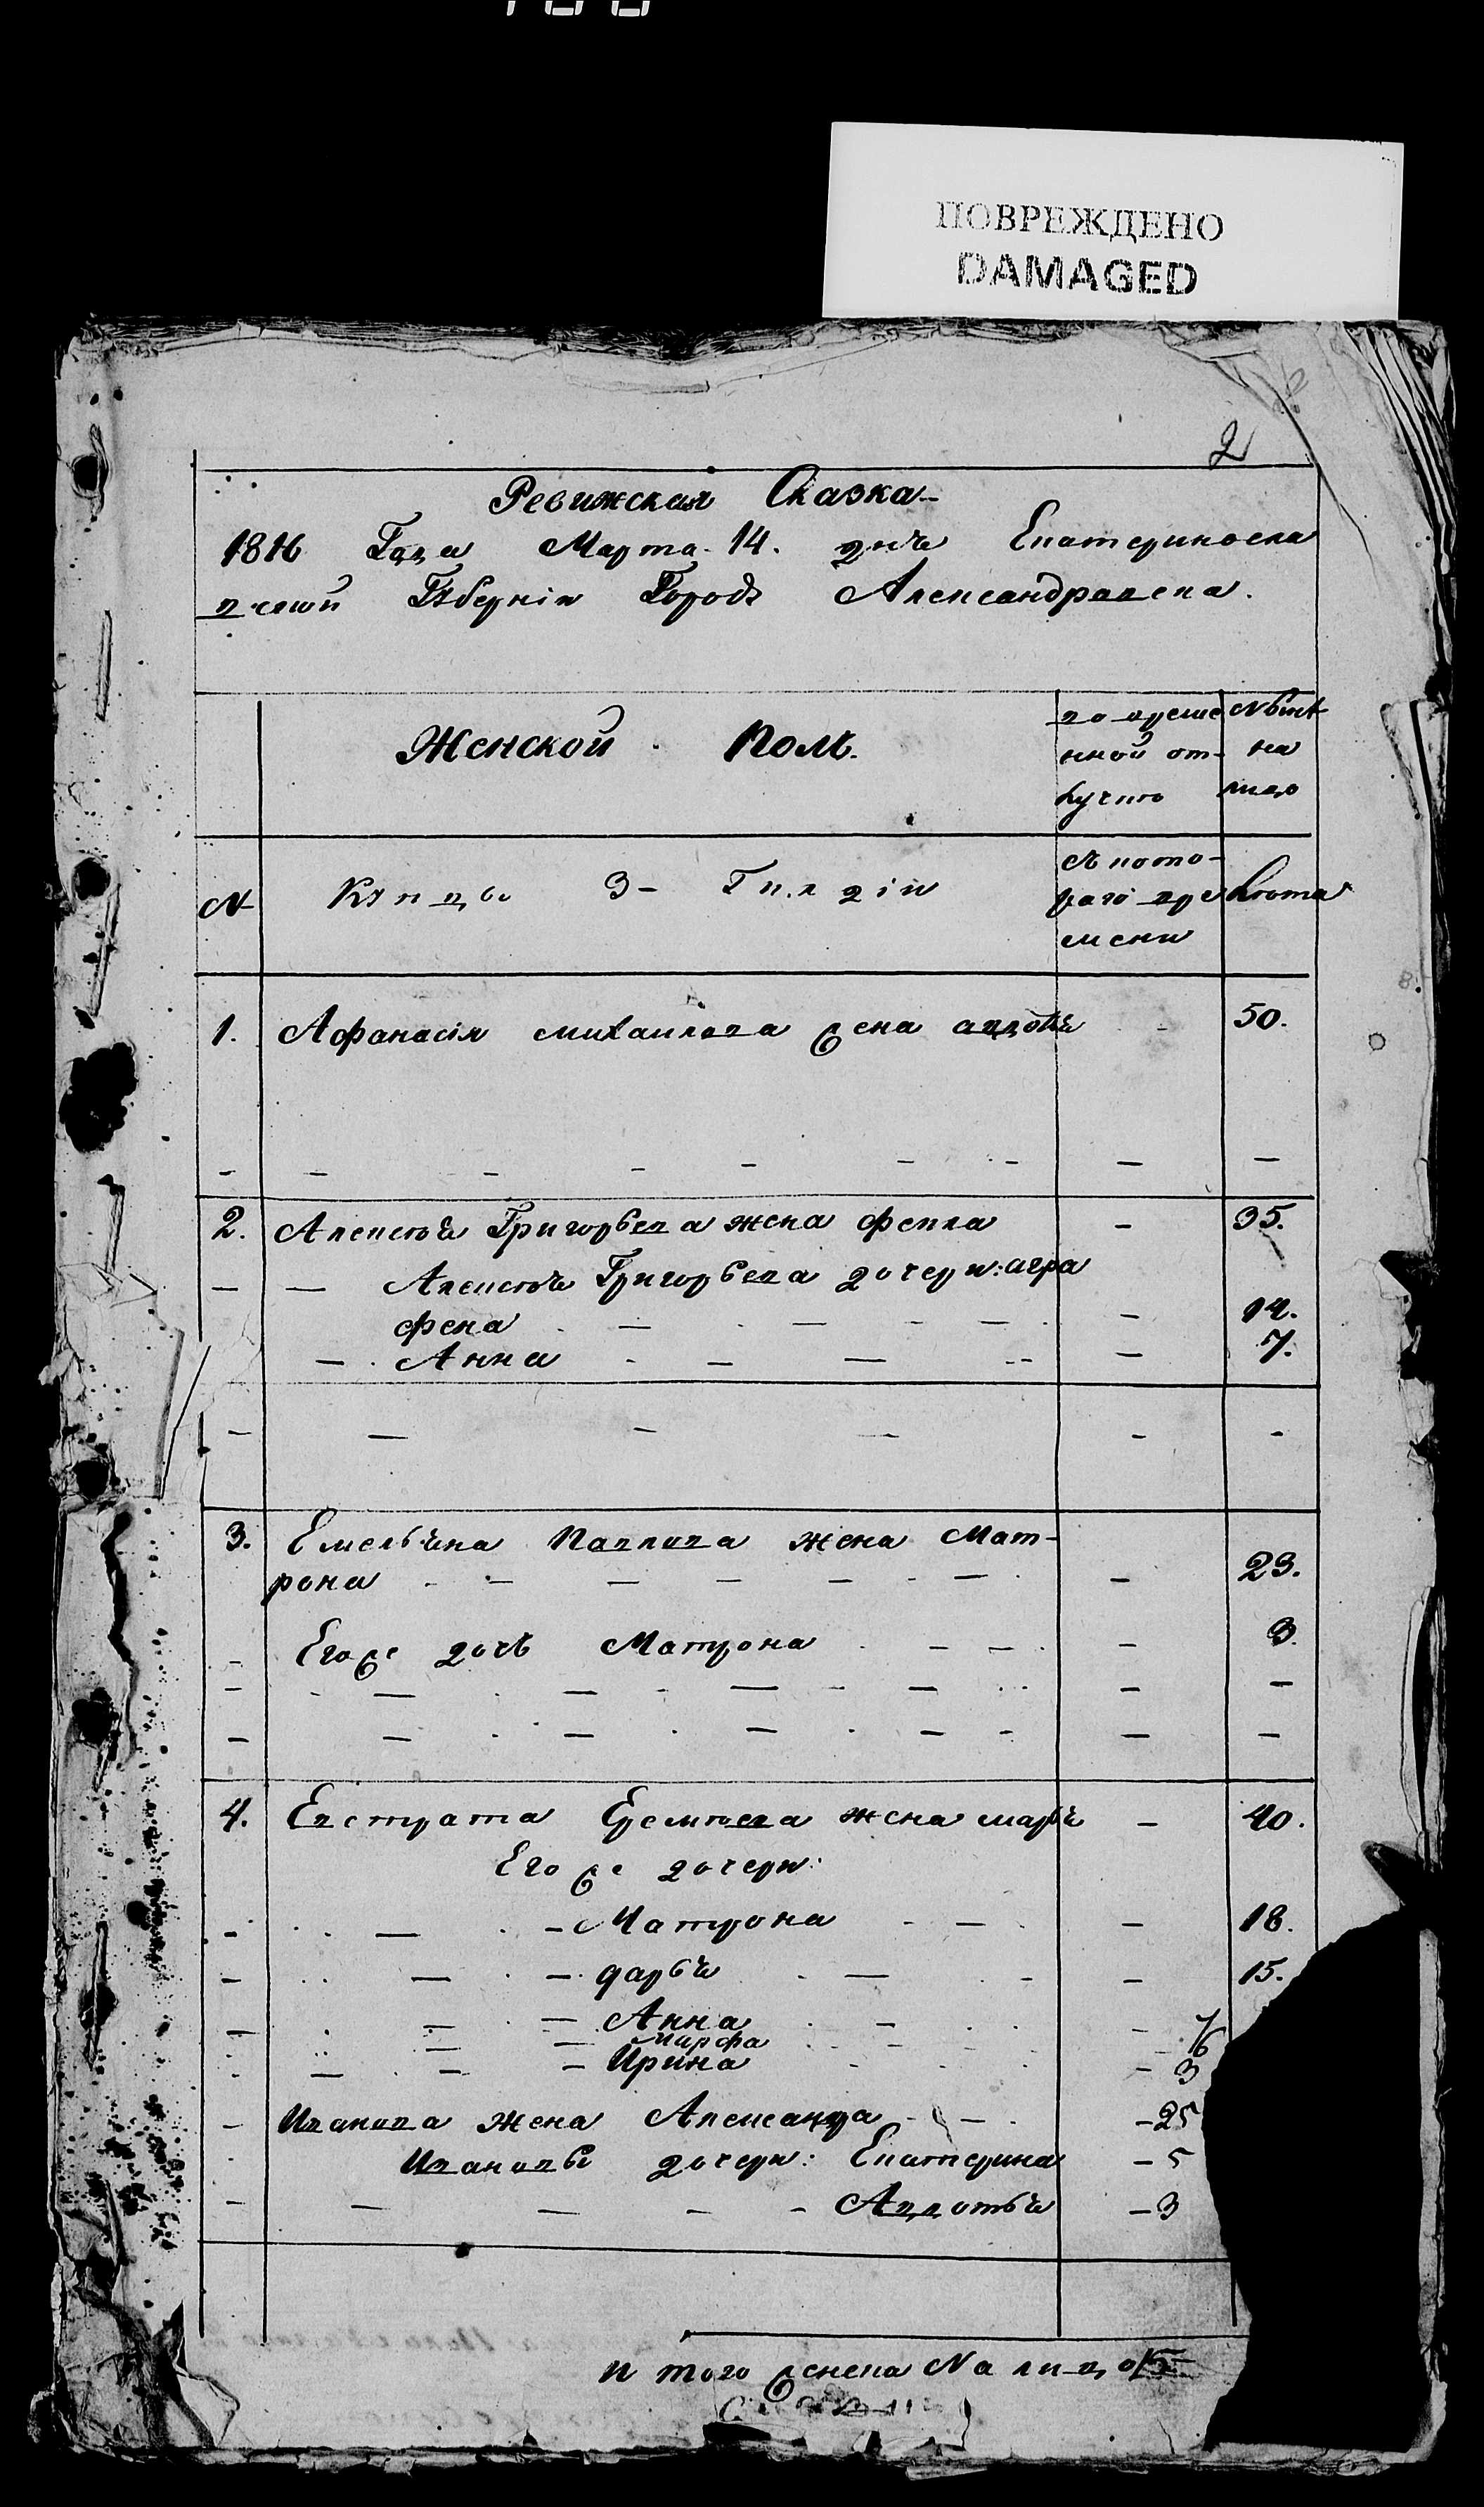 ПОВРЕЖДЕНО
DAMAGED
2
Ревижская Сказка
1816 Года Марта 14. дня Екатериносла
вской Губерніи Городъ Александравска.
Женской Полъ.
во време
нной от-
лучки
Ныне
на
лицо
N
Купцы 3- Гилдіи
Съ кото-
раго вре
мени
Лета
1. Афанасія михаилава жена авдотя - 50.
2. Алексея Григорьева жена фекла - 35.
Алексея Григорьева дочери: агра
фена - 14.
Анна - 7.
3. Емельяна Павлава жена Мат-
рона - 23.
Егоже дочь Матрона - 3.
4. Евстрата Еремеева жена марья - 40.
Егоже дочери:
Матрона - 18.
дарья - 15.
Анна - 7
Марфа - 6
Ирина - 3
Иванава жена Александра - 25
Ивановы дочери: Екатерина - 5
Авдотья - 3
и того женска На лицо 15